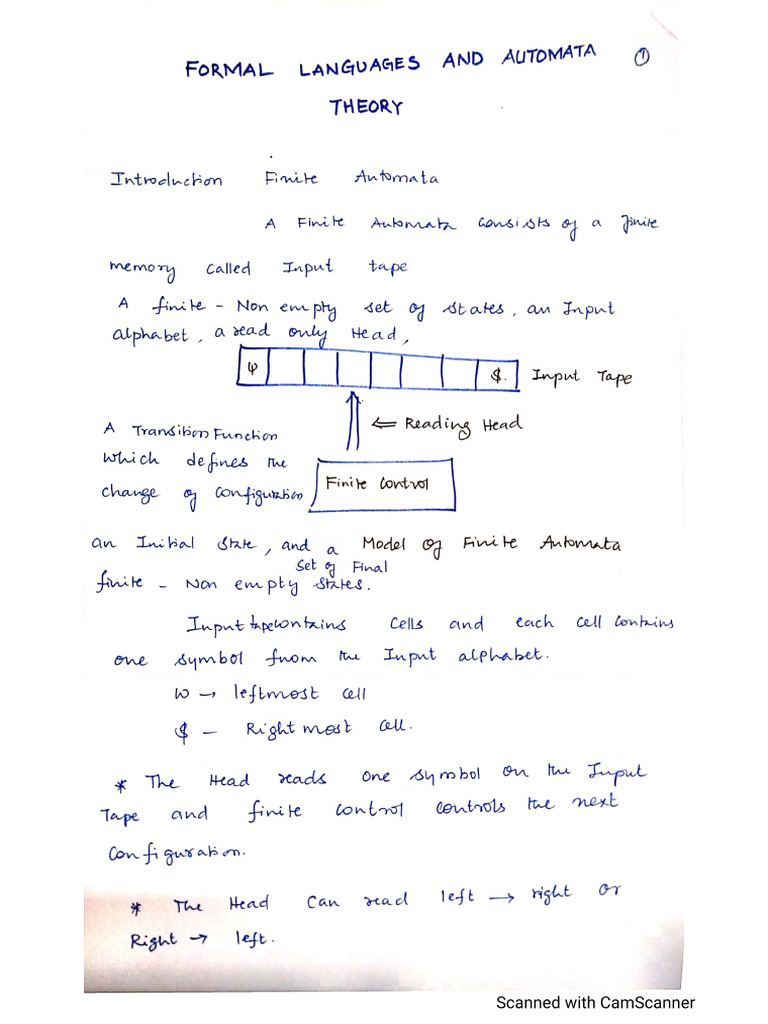 FORMAL LANGUAGES AND AUTOMATA ①
THEORY
Introduction Finite Automata
A Finite Automata consists of a finite
memory called Input tape
A finite - Non empty set of states, an Input
alphabet, a read only Head,
ψ $. Input Tape
⇐ Reading Head
A Transition Function
which defines the
change of configuration
Finite Control
an Initial State, and a Model of Finite Automata
Set of Final
finite - Non empty states.
Input tape contains cells and each cell contains
one symbol from the Input alphabet.
ω → leftmost cell
$ - Right most cell.
* The Head reads one symbol on the Input
Tape and finite control controls the next
Configuration.
* The Head Can read left → right or
Right → left.
Scanned with CamScanner